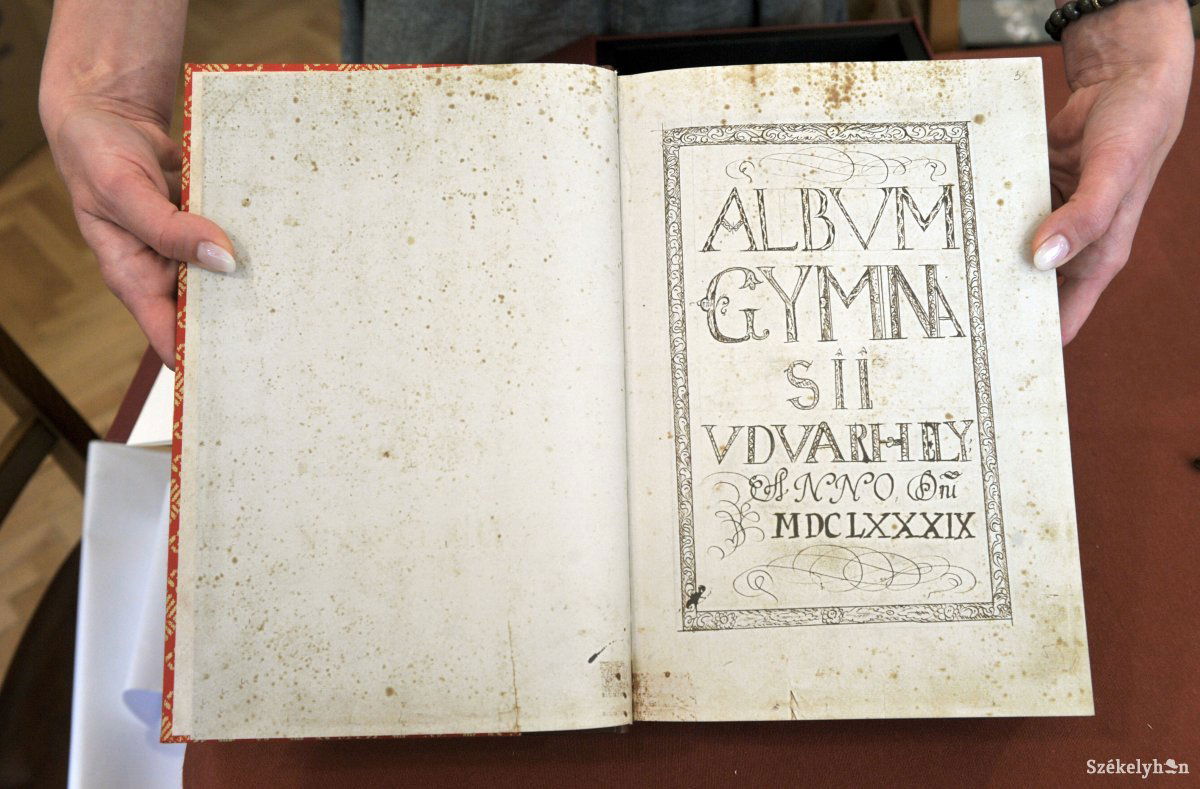 ALBVM
GYMNA
SÎÎ
VDVARHELY
ANNO Dn̄i
MDCLXXXIX
Székelyhon